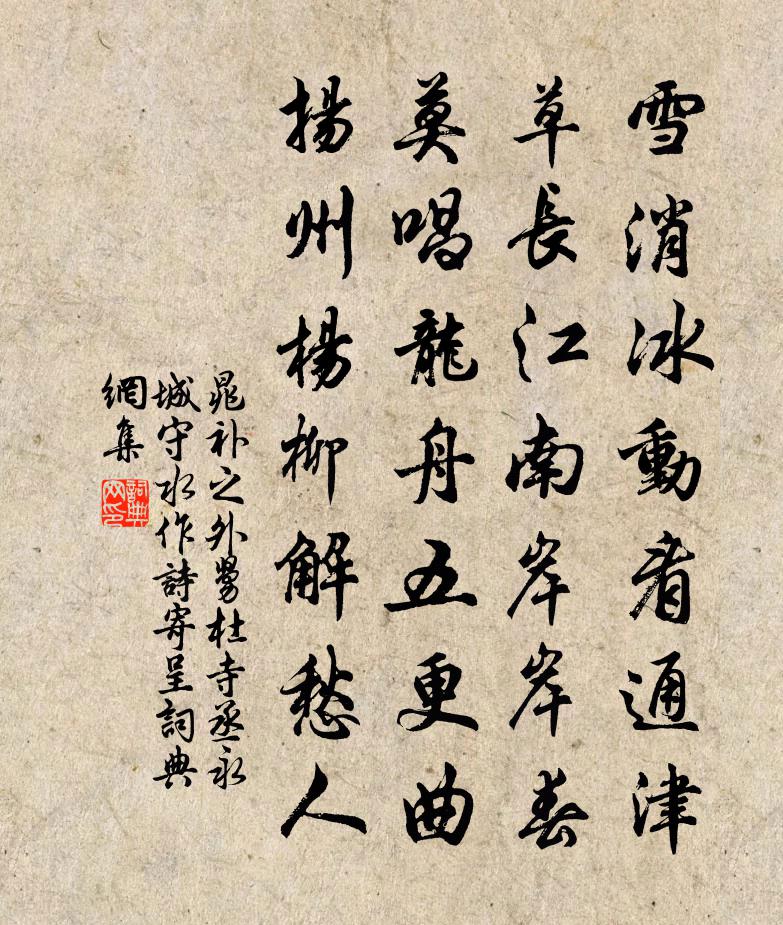 雪消冰動看通津
草長江南岸岸春
莫唱龍舟五更曲
揚州楊柳解愁人
晁补之外舅杜寺丞永
城守水作詩寄呈詞典
網集
詞典网印